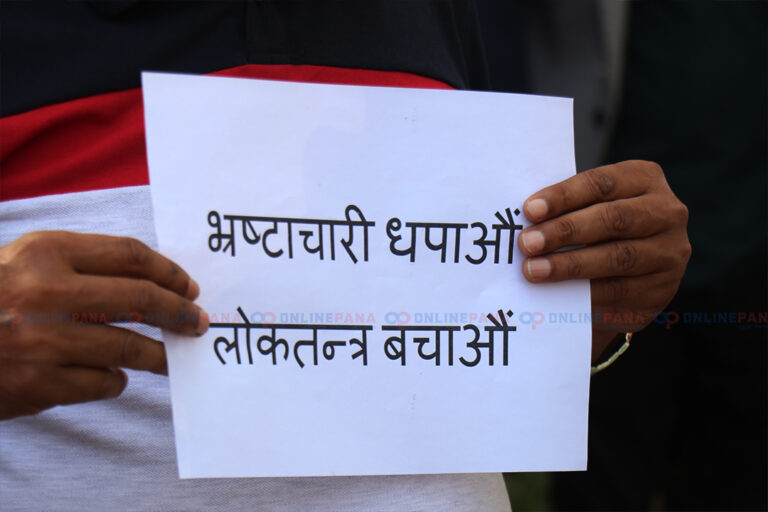 भ्रष्टाचारी धपाऔं
ONLINEPANA ONLINEPANA ONLINEPANA ONLINEPANA ONLINEPANA ONLINEPANA
लोकतन्त्र बचाऔं